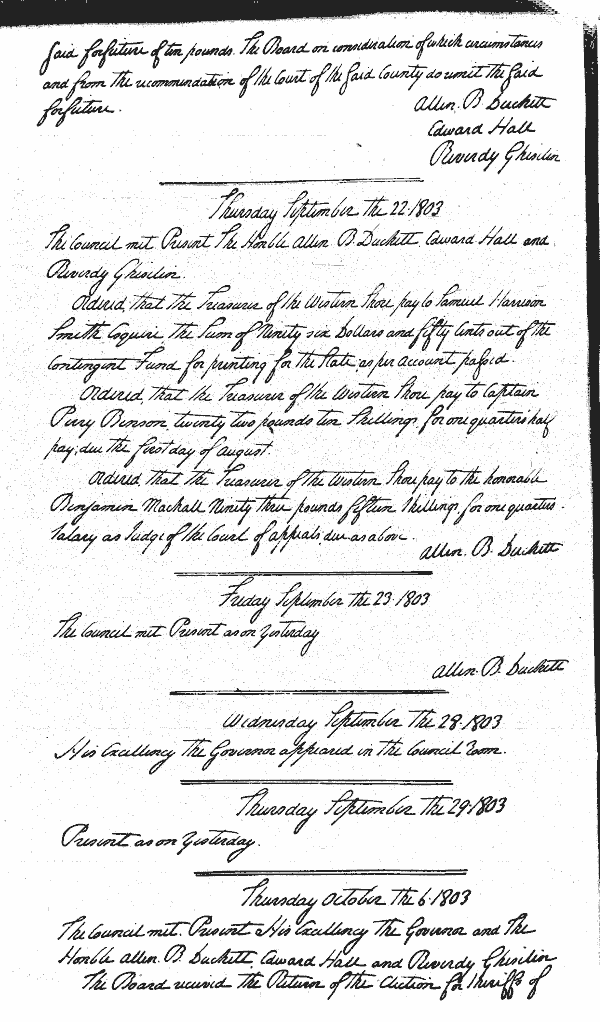 said forfeiture of ten pounds. The Board on consideration of which circumstances
and from the recommendation of the Court of the said County do remit the said
forfeiture.
Allen. B. Duckett
Edward Hall
Reverdy Ghiselin
Thursday September the 22. 1803
The Council met Present The Honble Allen B. Duckett Edward Hall and
Reverdy Ghiselin.
Ordered, that the Treasurer of the Western Shore pay to Samuel Harrison
Smith Esquire the Sum of Ninety six Dollars and fifty Cents out of the
Contingent Fund for printing for the State as per account passed.
Ordered, that the Treasurer of the Western Shore pay to Captain
Perry Benson, twenty two pounds ten Shillings, for one quarters half
pay, due the first day of august.
Ordered that the Treasurer of the Western Shore pay to the honorable
Benjamin Mackall Ninety three pounds fifteen Shillings, for one quarters
Salary as Judge of the Court of appeals, due as above.
Allen. B. Duckett
Friday September the 23. 1803
The Council met Present as on Yesterday
Allen. B. Duckett
Wednesday September the 28. 1803
His Excellency the Governor appeared in the Council Room.
Thursday September the 29. 1803
Present as on Yesterday.
Thursday October the 6. 1803
The Council met. Present His Excellency the Governor and the
Honble Allen. B. Duckett Edward Hall and Reverdy Ghiselin
The Board received the Return of the Election for Sheriffs of